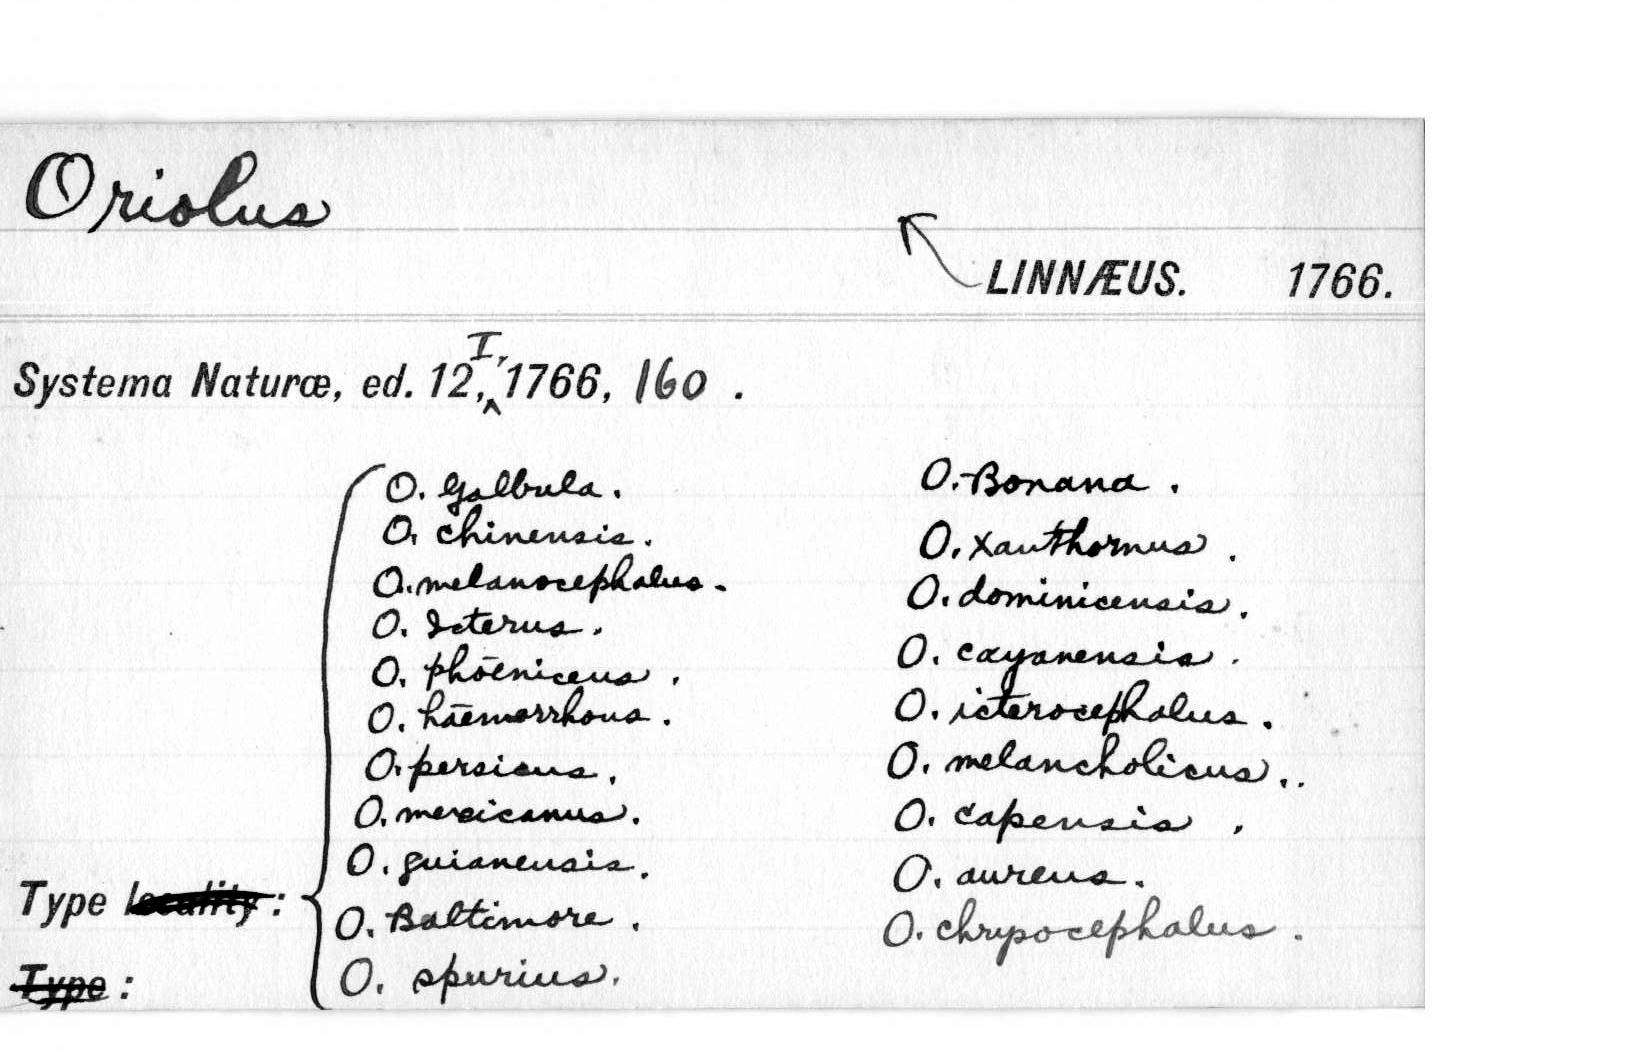 Oriolus
LINNÆUS. 1766.
Systema Naturæ, ed. 12, I, 1766, 160 .
O. Galbula.
O. chinensis.
O. melanocephalus.
O. Icterus.
O. phoeniceus.
O. haemorrhous.
O. persicus.
O. mexicanus.
O. guianensis.
O. Baltimore.
O. spurius.
O. Bonana.
O. xanthornus.
O. dominicensis.
O. cayanensis.
O. icterocephalus.
O. melancholicus..
O. capensis.
O. aureus.
O. chrypocephalus.
Type locality :
Type :